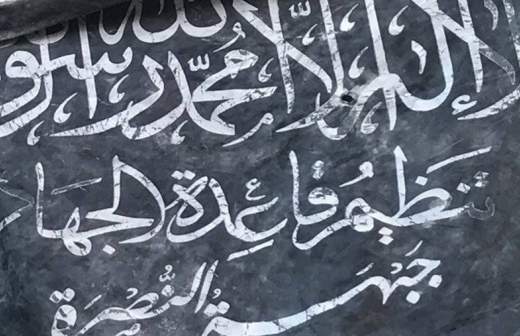 لا إله إلا الله محمد رسول
تنظيم قاعدة الجهاد
جبهة النصرة